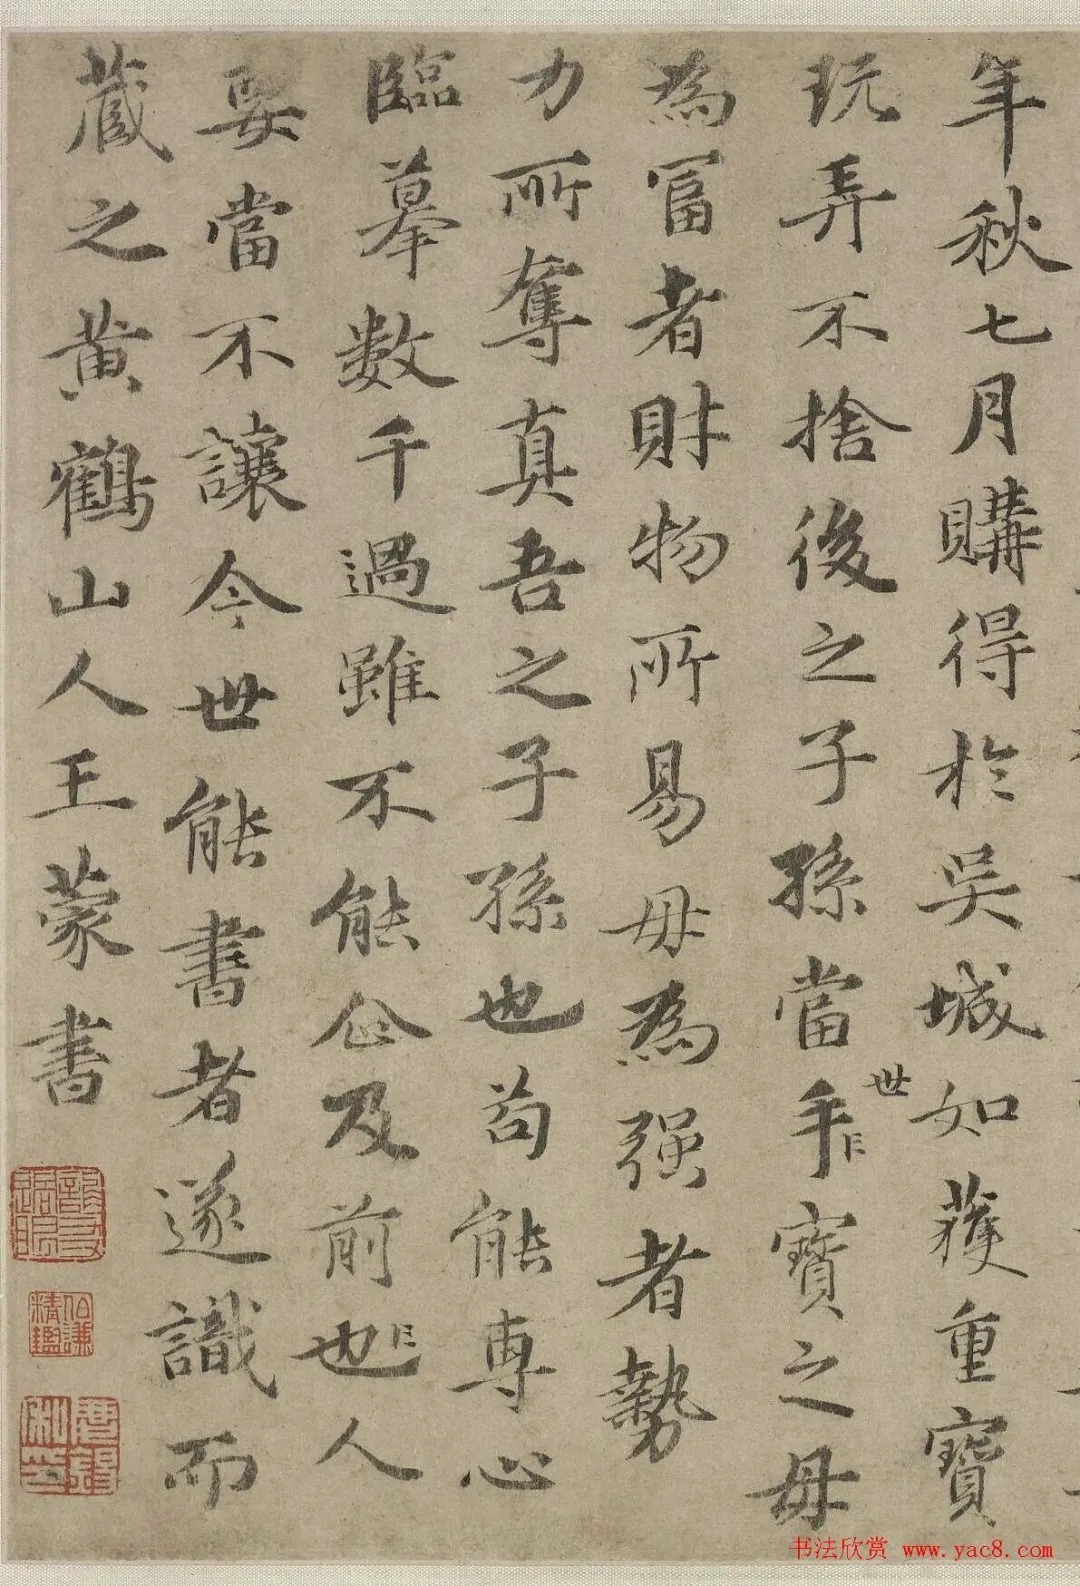 年秋七月購得於吳城如獲重寶
玩弄不捨後之子孫當手寶之毋
世
為富者財物所易毋為强者勢
力所奪真吾之子孫也苟能專心
臨摹數千過雖不能企及前也人
要當不讓今世能書者遂識而
藏之黄鶴山人王蒙書
伯謙
精鑑
书法欣赏 www.yac8.com